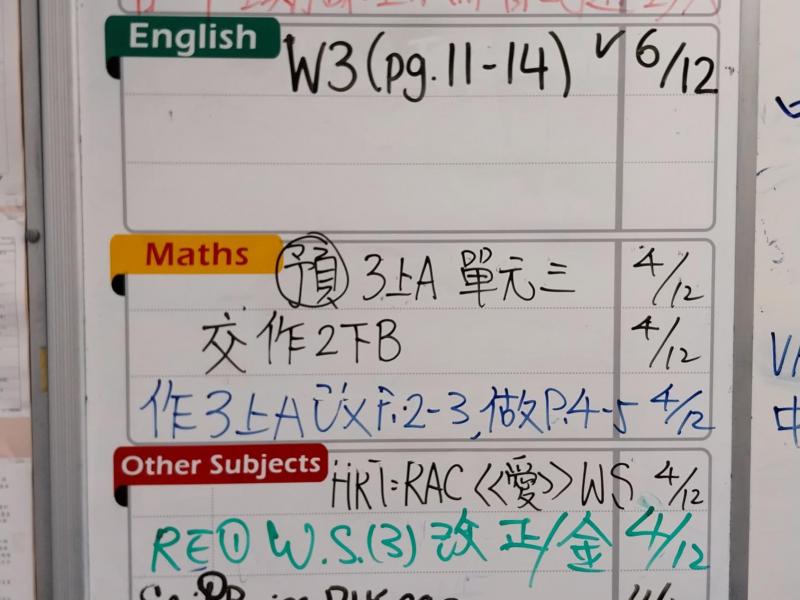 English
W3(pg.11-14) ✓ 6/12
Maths
預 3上A 單元三 4/12
交作2下B 4/12
作3上A 以 P.2-3,做P.4-5 4/12
Other Subjects
HRT:RAC《愛》WS 4/12
RE① W.S.(3) 改正/金 4/12